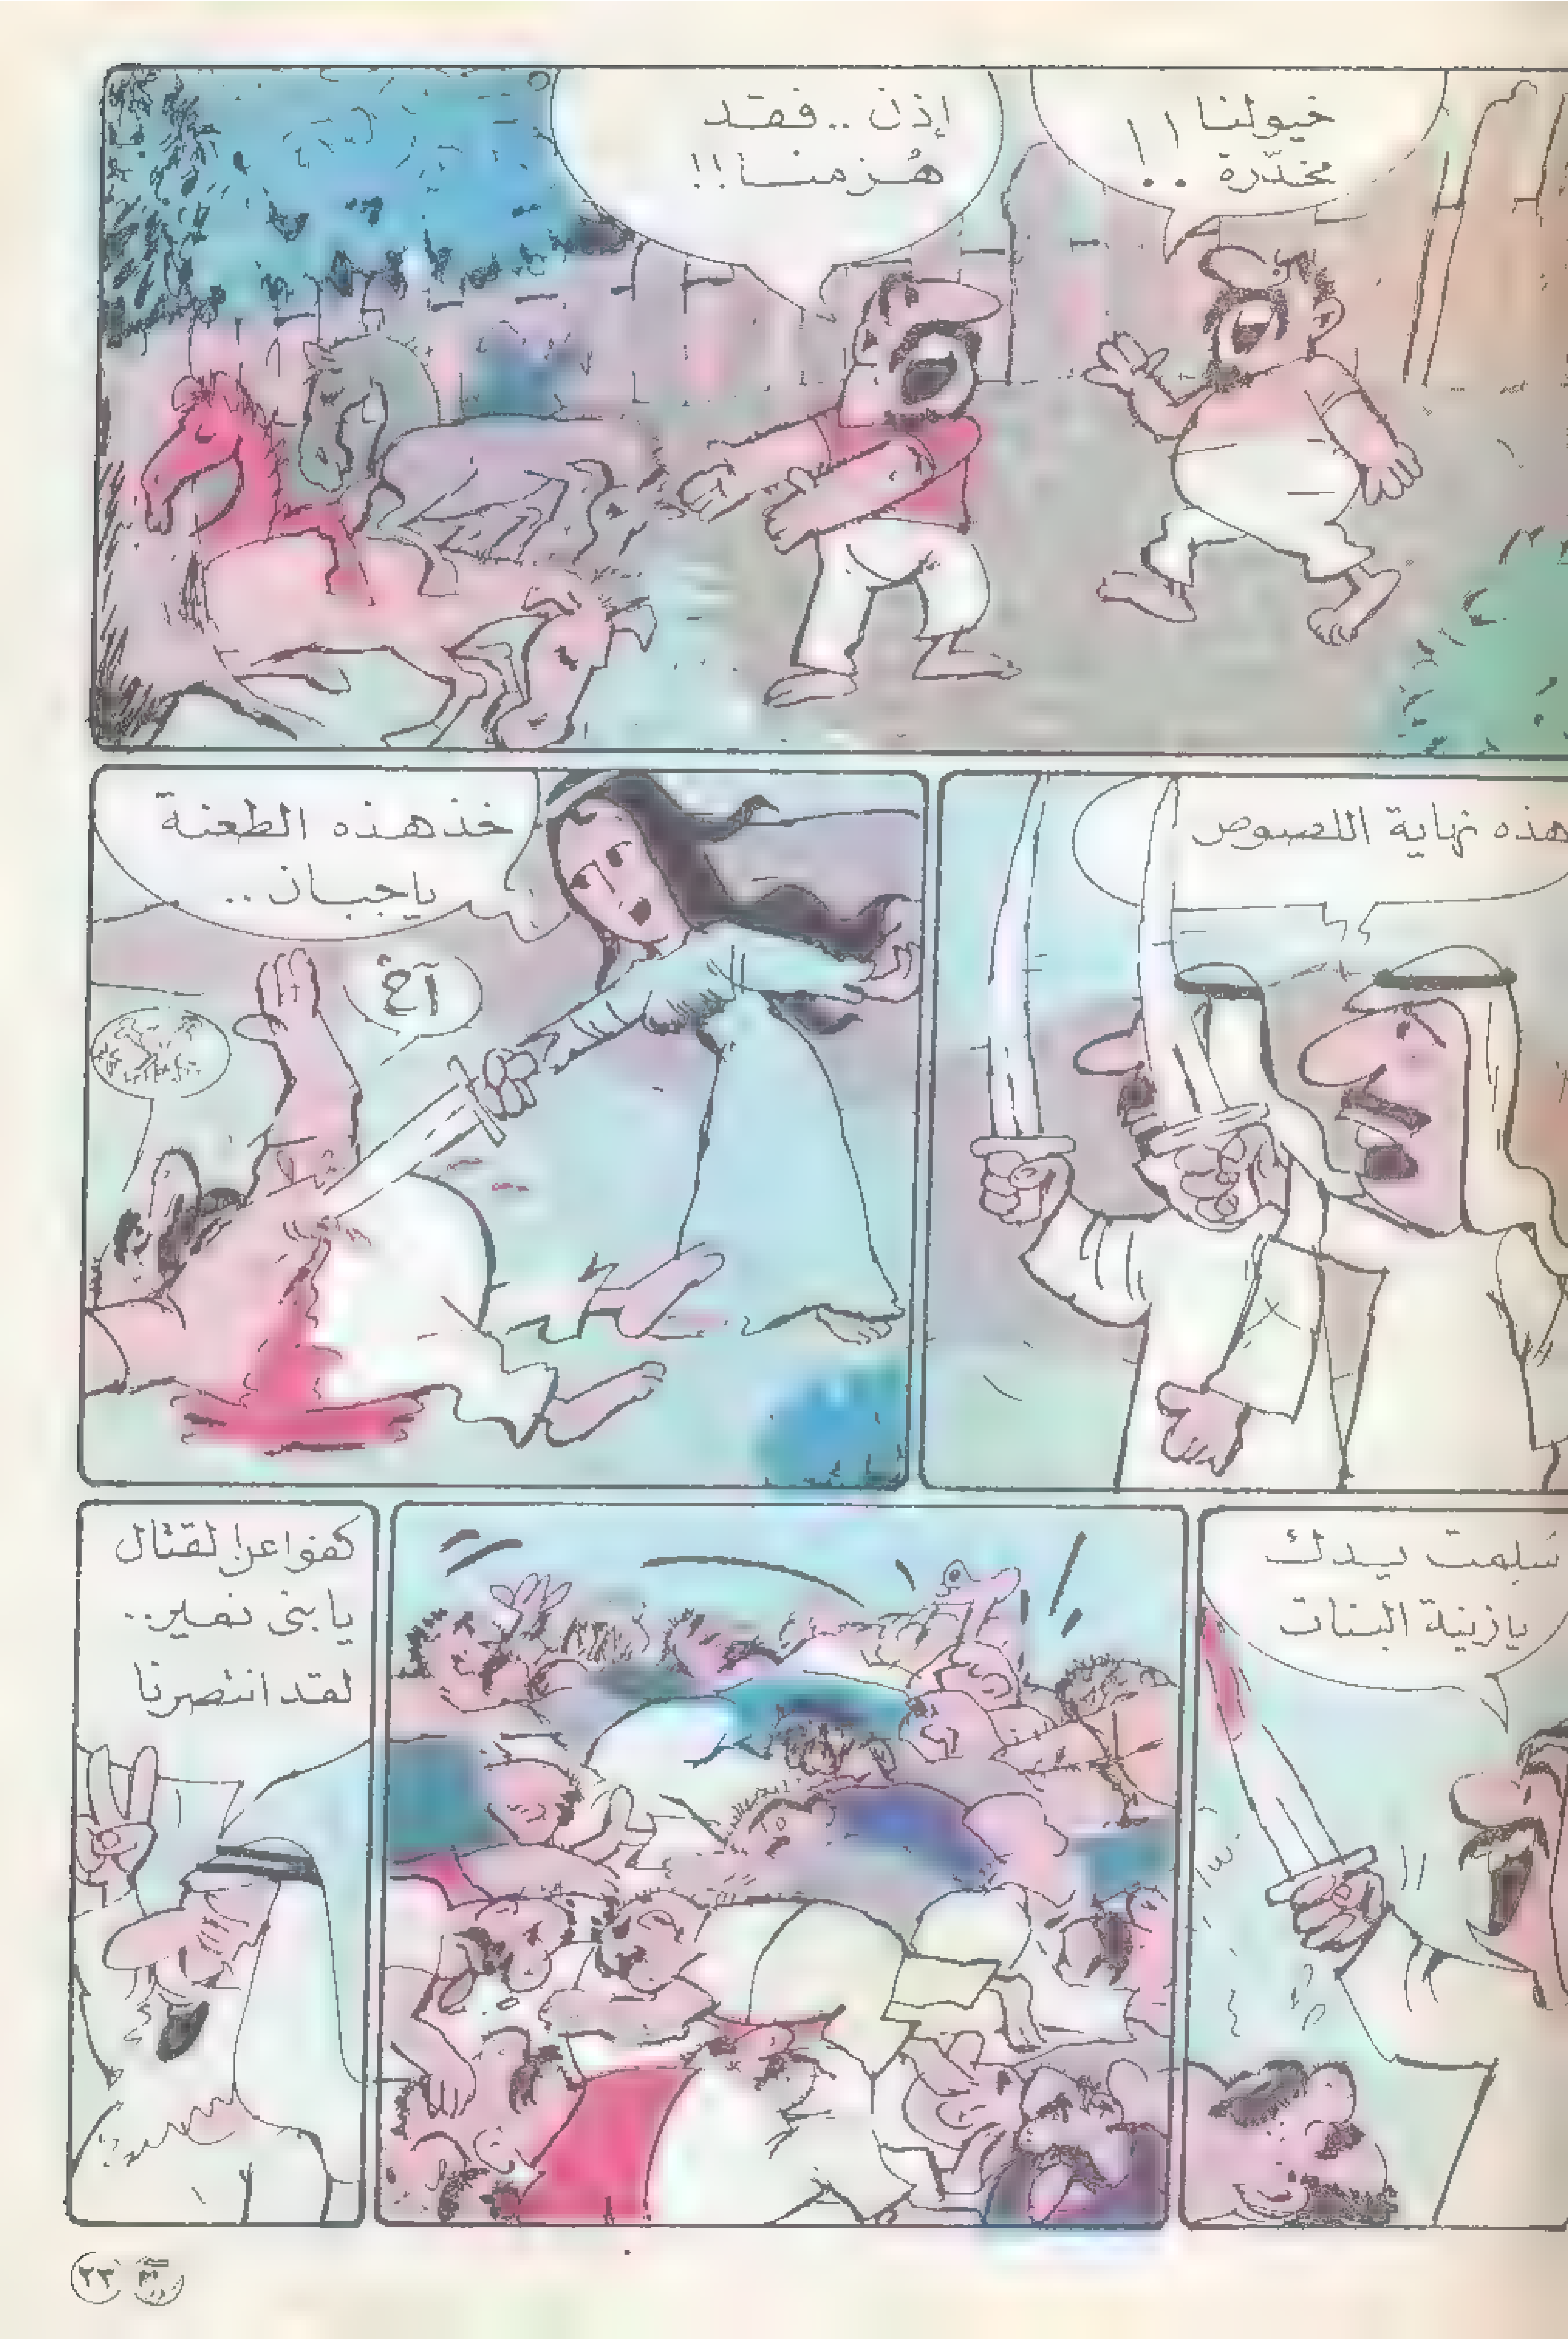 خيولنا !!
مخدّرة ..
إذن .. فقد
هُزمنا !!
هذه نهاية اللصوص
خذ هذه الطعنة
يا جبان ..
آخ
سَلِمت يدك
يا زينة البنات
كفوا عن القتال
يا بني نمير ..
لقد انتصرنا
٢٣